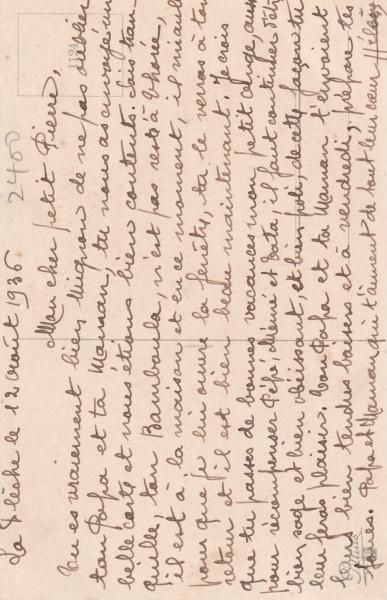 La Flèche le 12 août 1936
Mon cher petit Pierre,
Tu es vraiment bien mignon de ne pas oublier
ton Papa et ta Maman, tu nous as envoyé une
belle carte et nous étions bien contents. Sois tran-
quille, ton Bamboula, n'est pas resté à Thorée,
il est à la maison et en ce moment, il miaule
pour que je lui ouvre la fenêtre, tu le verras à ton
retour et il est bien beau maintenant. Je crois
que tu passes de bonnes vacances mon petit ange, aussi
pour récompenser Pépé, Mémé et Tata, il faut continuer d'être
bien sage et bien obéissant, et bien poli, de cette façon tu
leur feras plaisir. Ton Papa et ta Maman t'envoient
leurs bien tendres baisers et à vendredi, prépare tes
joues. Papa et Maman qui t'aiment de tout leur cœur
2400
1194